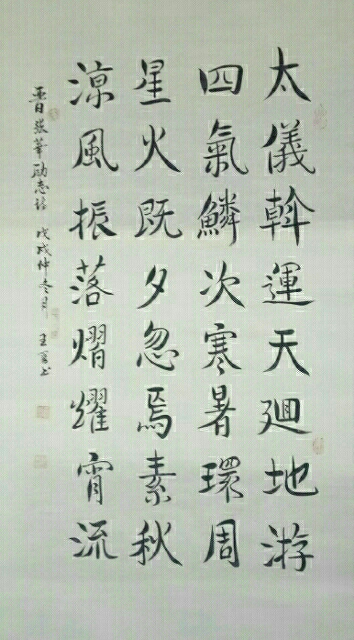 太儀斡運天迴地游
四氣鱗次寒暑環周
星火既夕忽焉素秋
涼風振落熠耀宵流
晋張華励志诗 戊戌仲冬月 王